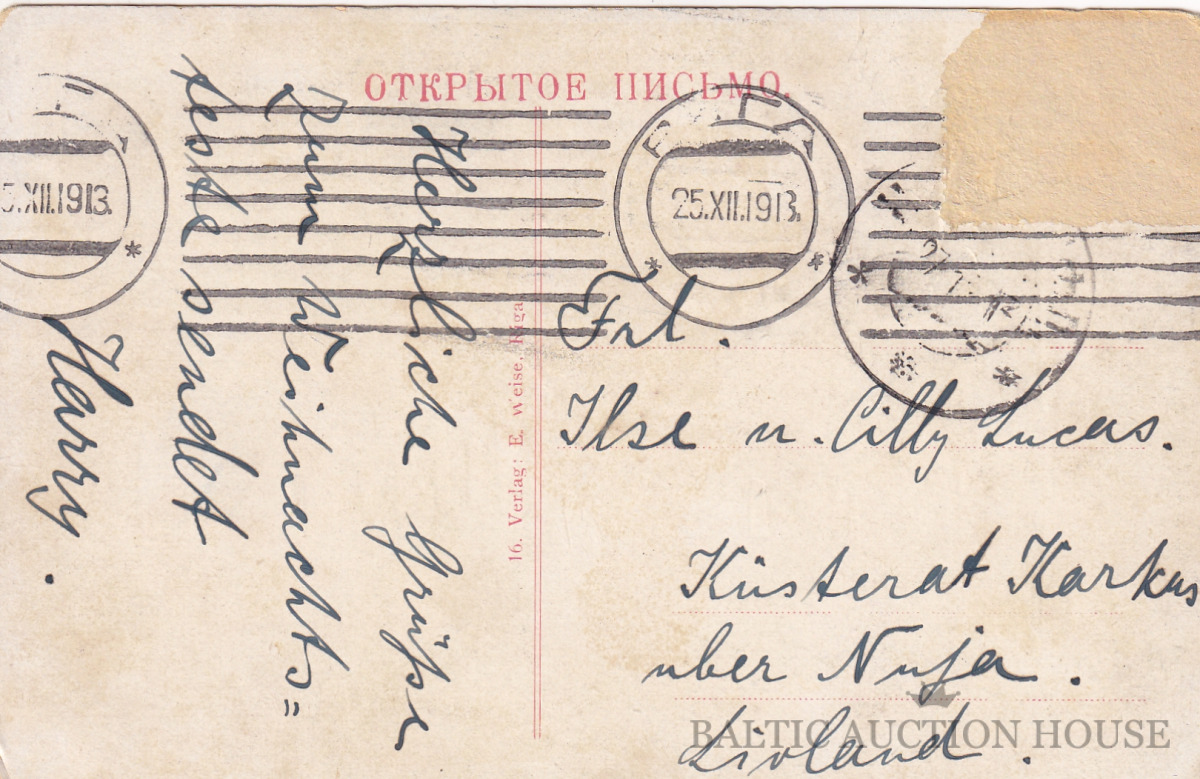 ОТКРЫТОЕ ПИСЬМО.
РИГА
25.XII.1913.
5.XII.1913.
Herzliche Grüsse
zum Weihnachts=
feste sendet
Harry.
16. Verlag: E. Weise, Riga
Frl.
Ilse u. Cilly Lucas.
Küsterat Karkus
über Nuja.
Livland.
BALTIC AUCTION HOUSE